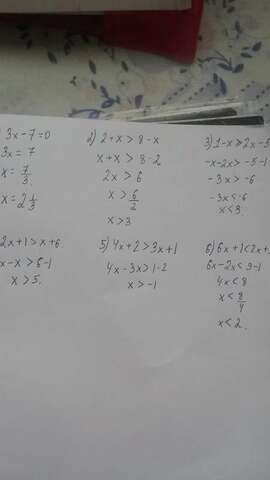 3x-7=0
3x=7
x=7/3
x=2 1/3
2) 2+x > 8-x
x+x > 8-2
2x > 6
x > 6/2
x>3
3) 1-x ≥ 2x-5
-x-2x ≥ -5-1
-3x ≥ -6
2x+1>x+6
x-x > 6-1
x > 5.
5) 4x+2 > 3x+1
4x-3x > 1-2
x > -1
6) 6x+1<2x+
6x-2x < 9-1
4x < 8
x < 8/4
x < 2.